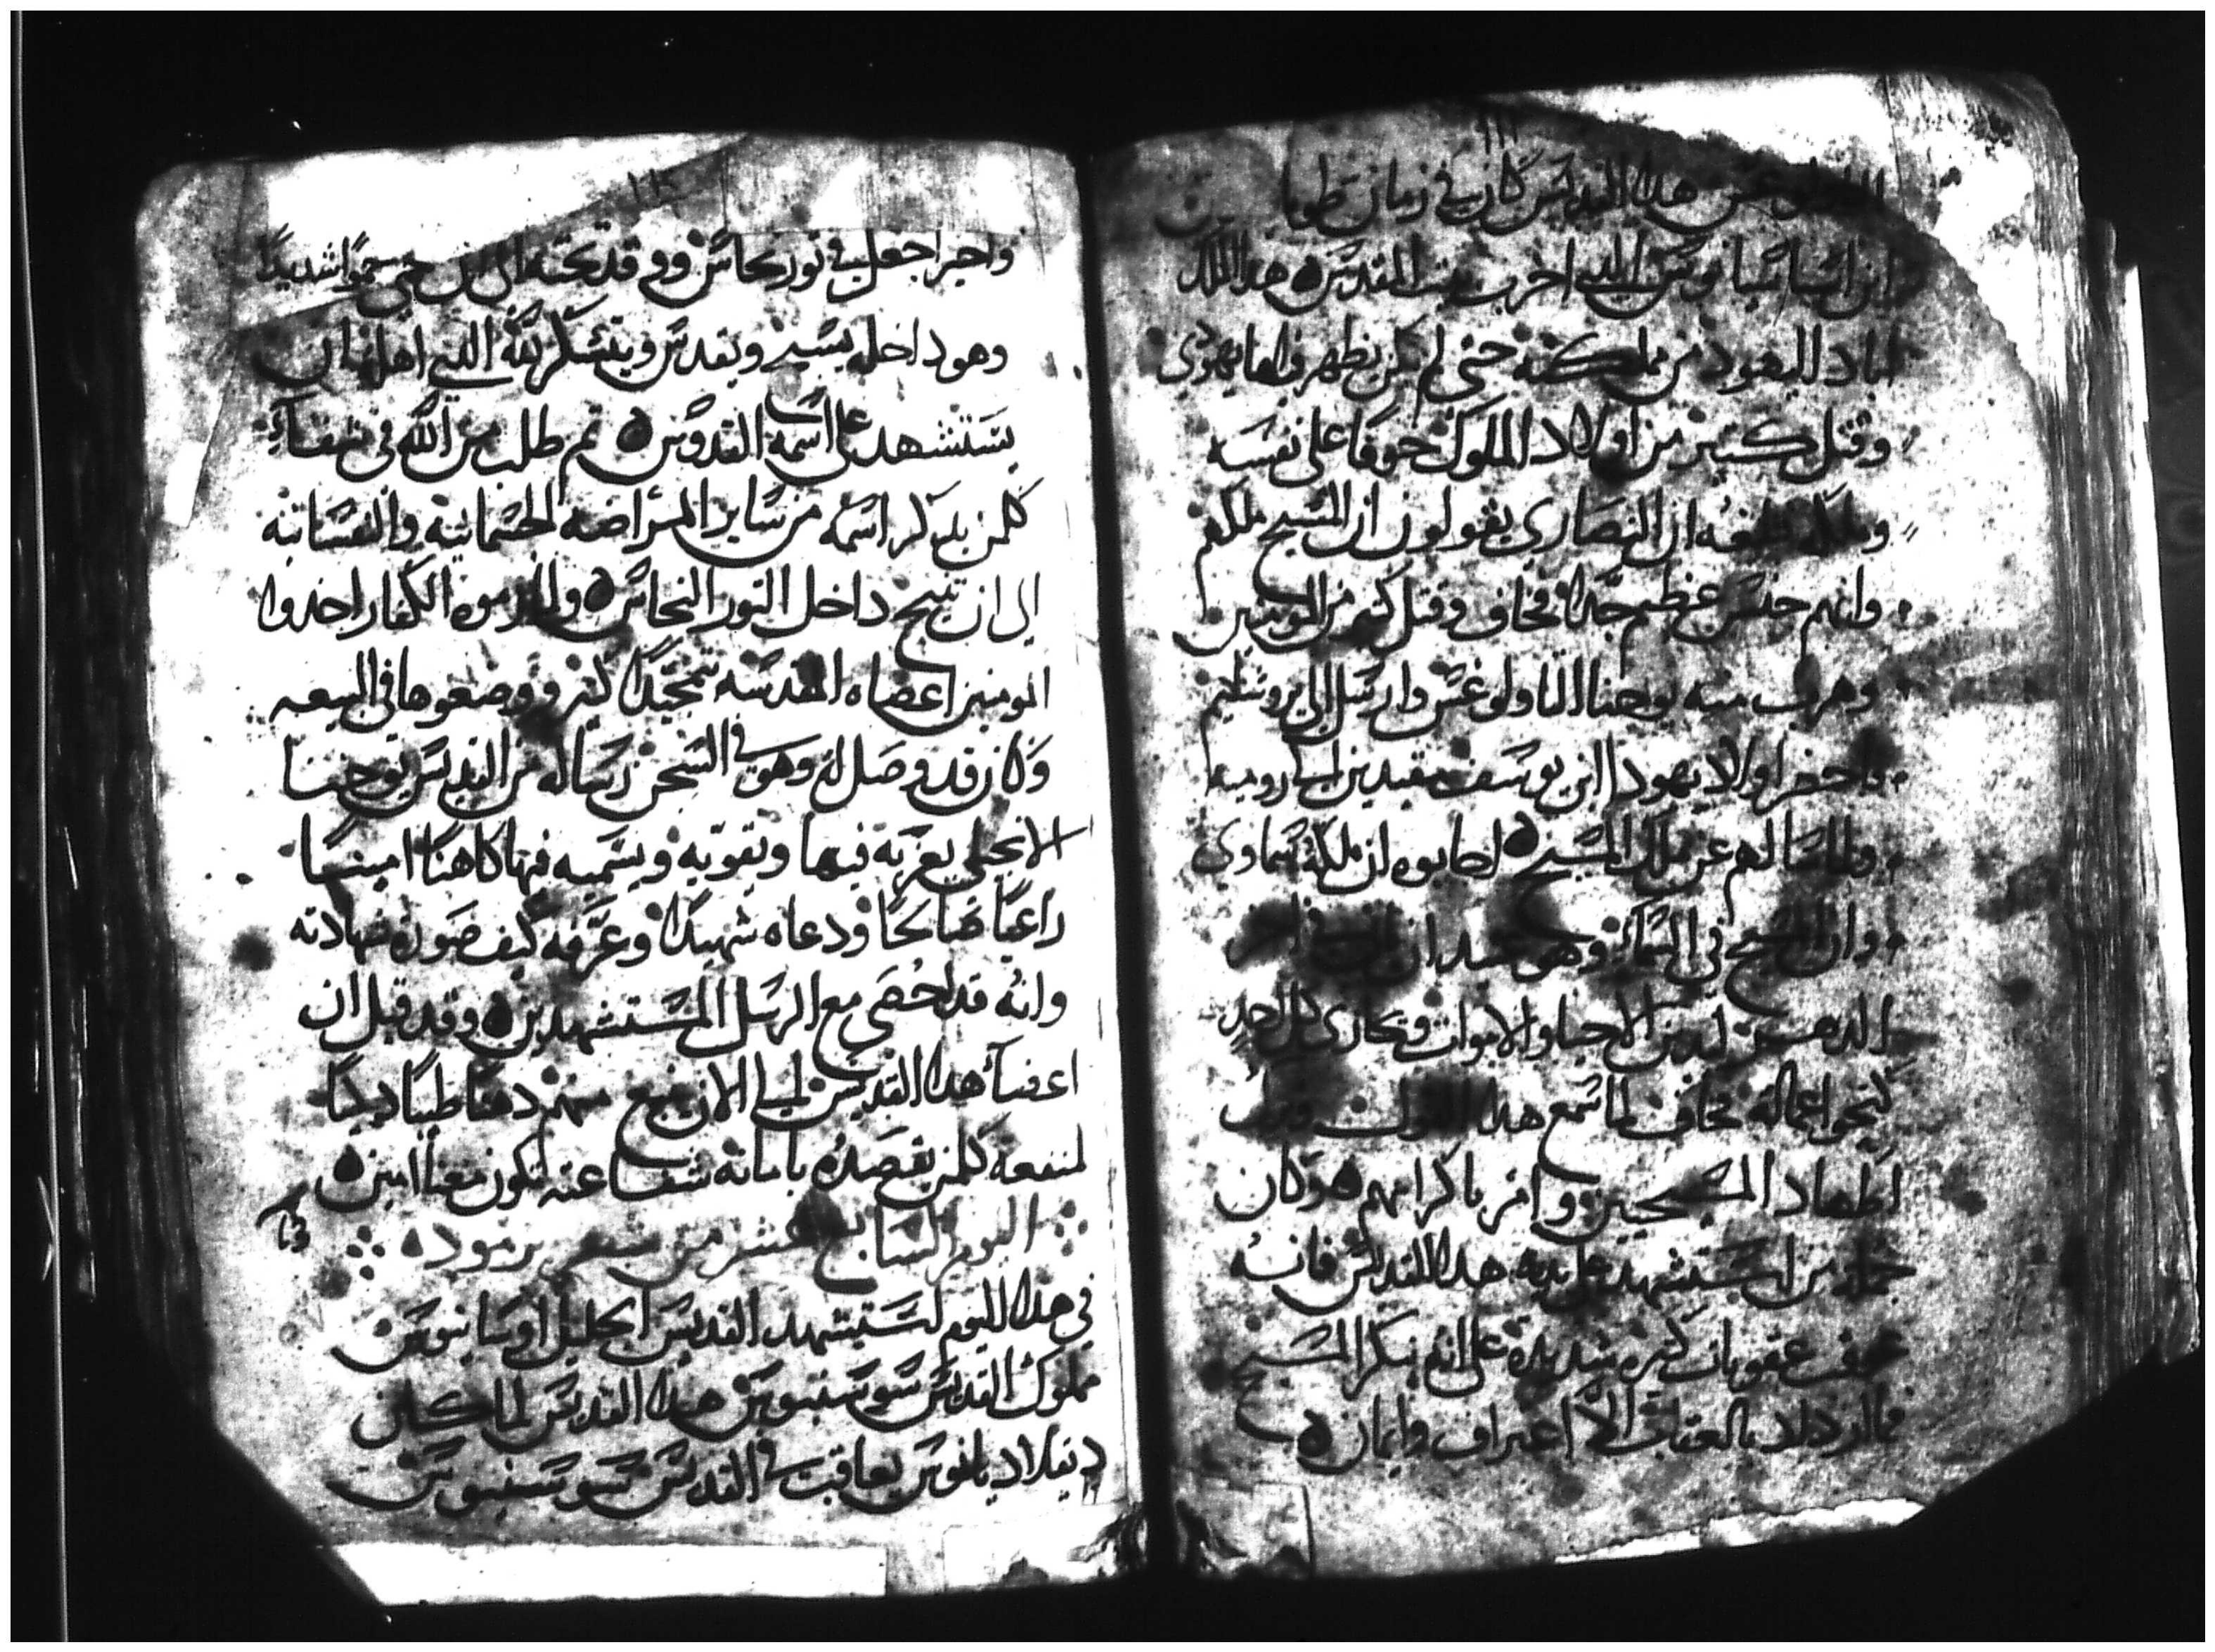 هدا القديس كان في زمان طوما
ابن اسباسيانوس الدي اخرب بيت المقدس هدا الملك
اباد اليهود من مملكته حتى لم يكن يظهر فيها يهودي
وقتل كتير من اولاد الملوك خوفا على نفسه
ان النصارى يقولون ان المسيح ملكهم
وانهم جنس عظيم جدا فخاف وقتل كتير من المومنين
وهرب منه يوحنا التاولوغس وارسل الى يروشليم
واحضر اولاد يهودا ابن يوسف مقيدين الى روميه
ولما سالهم عن ملك المسيح اجابوه ان ملكه سماوي
وان المسيح في السماء وهو عتيد ان ياتي في اخر
الدهر يدين الاحيا والاموات ويجازي كل احد
كنحو اعماله فخاف لما سمع هدا القول وترك
اضطهاد المسيحيين وامر باكرامهم وكان
جملة من استشهد على يديه هدا القديس فانه
عقوبات كتيره شديده على انه ينكر المسيح
فما ازداد بالعقاب الا اعتراف وايمان
١١٢
واخيرا جعل في تور نحاس ووقد تحته الى ان حمي حموا شديدا
وهو داخله يسبح ويقدس ويتشكر لله الدي اهله ان
يستشهد على اسمه القدوس تم طلب من الله في شفاء
كلمن يدكر اسمه من ساير المراضه الجسمانيه والنفسانيه
الى ان تنيح داخل التور النحاس والدي رموه الكفار اخدوا
المومنين اعضاه المقدسه بتمجيدا كتير ووضعوها في البيعه
وكان قد وصل له وهو في السجن رساله من القديس يوحنا
الانجيلي يعزيه فيها ويقويه ويسميه فيها كاهنا امينا
راعيا صالحا ودعاه شهيدا وعرفه كيف صورة شهادته
وانه قد احصي مع الرسل المستشهدين وقد قيل ان
اعضاء هدا القديس الى الان ينبع منهم دهنا طيبا ديدا
لمنفعه كلمن يقصده بامانه شفاعته تكون معنا امين
اليوم السابع عشر من شهر برموده
في هدا اليوم استشهد القديس الجليل اوسابيوس
مملوك القديس سوسنيوس هدا القديس لما كان
ديقلاديانوس يعاقب في القديس سوسنيوس